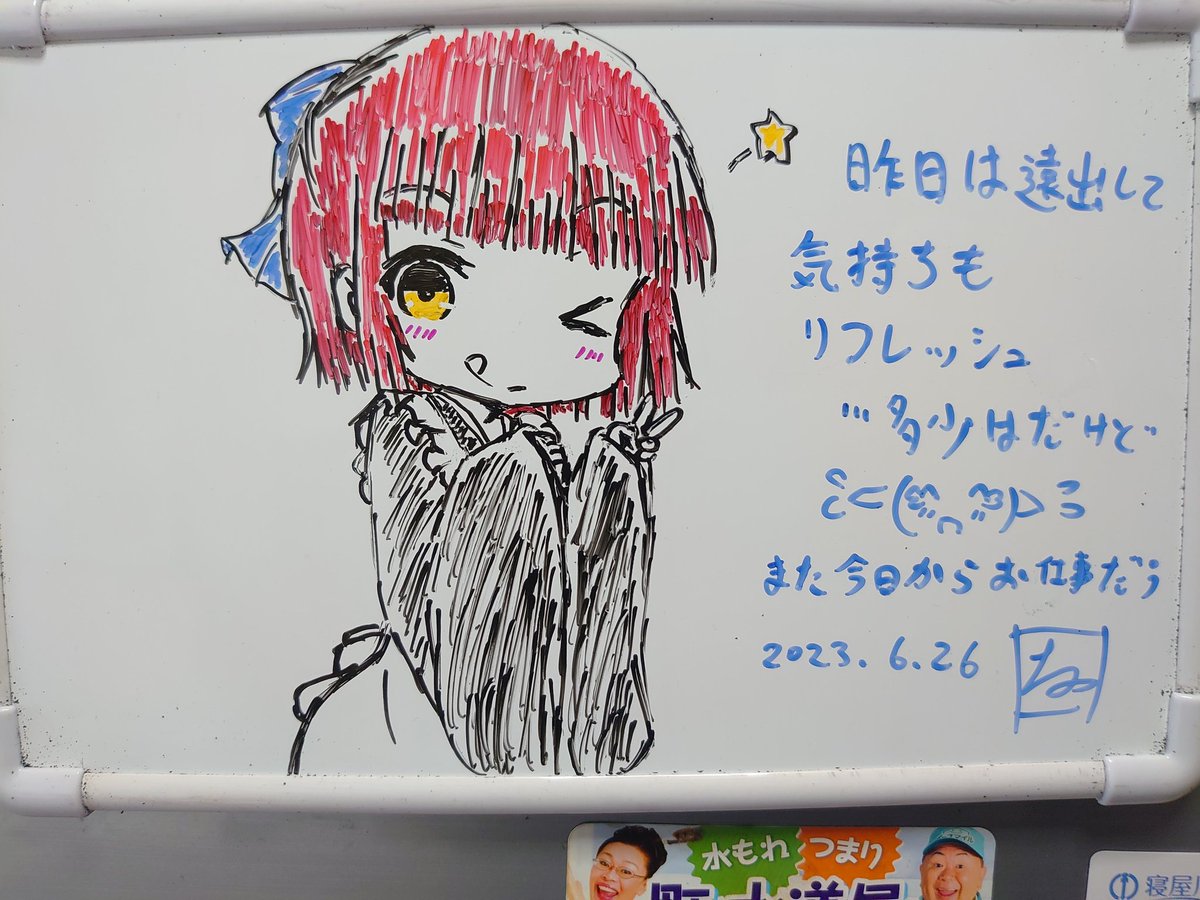 昨日は遠出して
気持ちも
リフレッシュ
…多少はだけど
また今日からお仕事だぅ
2023.6.26
水もれ
つまり
寝屋